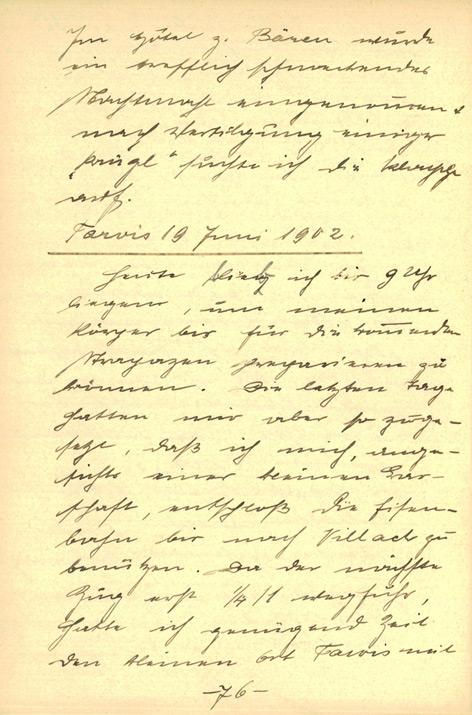 Im Hôtel z. Bären wurde
ein trefflich schmeckendes
Nachtmahl eingenommen &
nach Vertilgung einiger
„Krügl“ suchte ich die Klappe
auf.
Tarvis 19 Juni 1902.
Heute blieb ich bis 9 Uhr
liegen, um meinen
Körper bis für die kommenden
Strapazen preparieren zu
können. Die letzten Tage
hatten mir aber so zuge-
setzt, daß ich mich, ange-
sichts einer kleinen Bar-
schaft, entschloß die Eisen-
bahn bis nach Villach zu
benützen. Da der nächste
Zug erst 1/4 1 wegfuhr,
hatte ich genügend Zeit
den kleinen Ort Tarvis mit
-76-